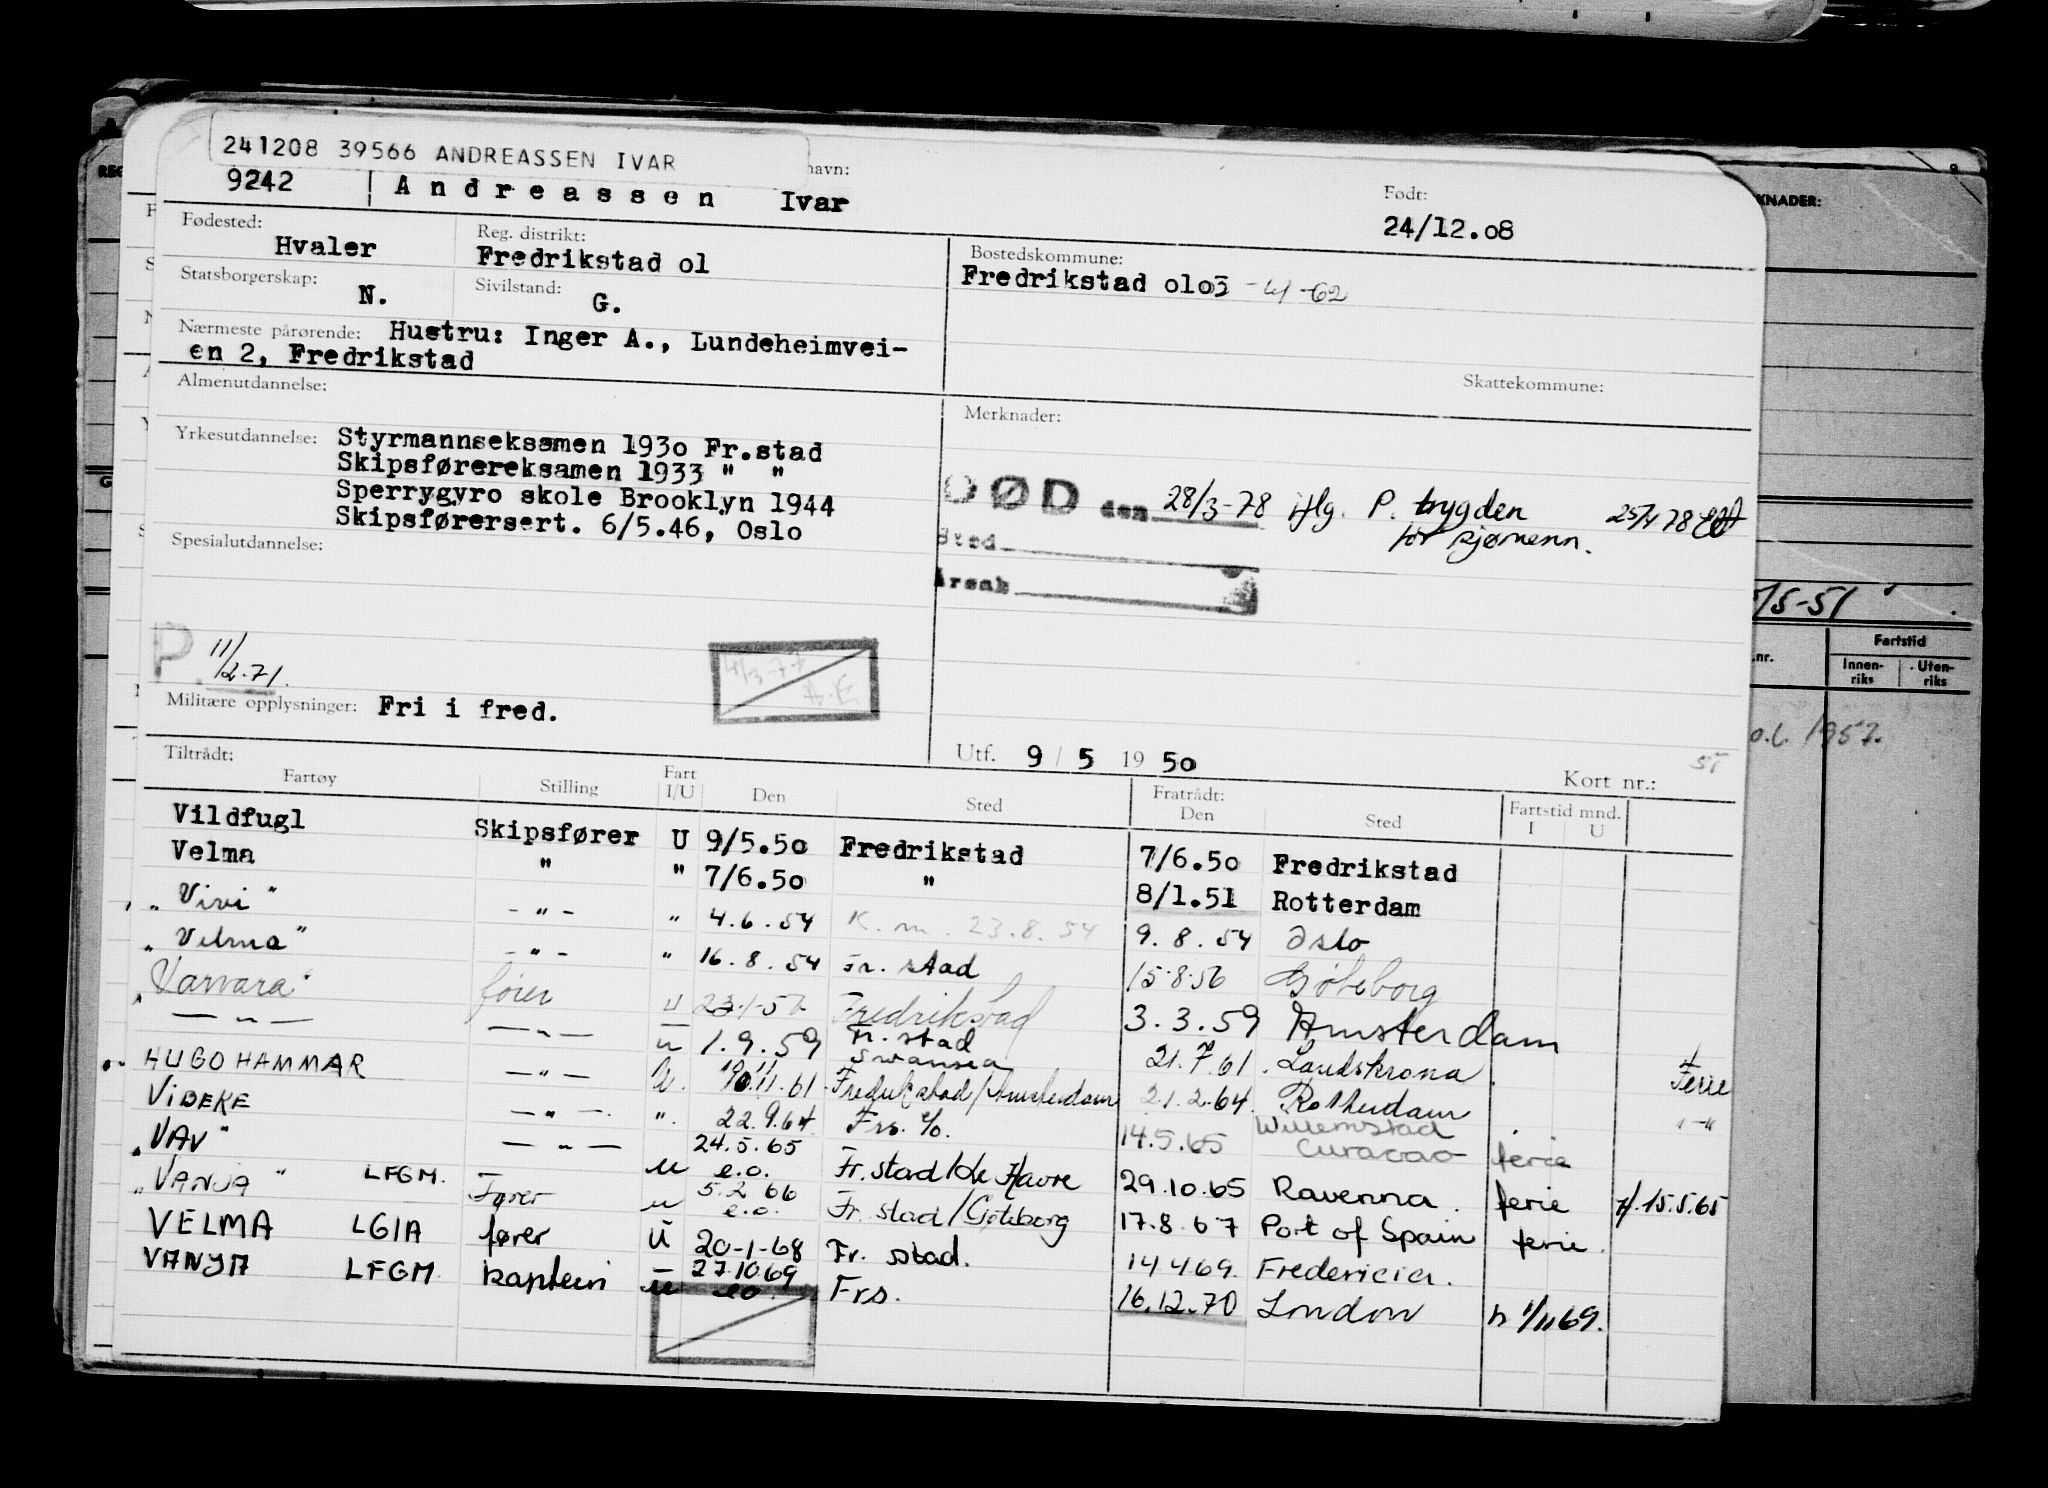 241208 39566 ANDREASSEN IVAR
navn:
9242 Andreassen Ivar
Født:
24/12.o8
Fødested: Hvaler
Reg. distrikt: Fredrikstad ol
Bostedskommune: Fredrikstad olo3 - 4/ -62
Statsborgerskap: N.
Sivilstand: G.
Nærmeste pårørende: Hustru: Inger A., Lundeheimvei-
en 2, Fredrikstad
Almenutdannelse:
Skattekommune:
Merknader:
Yrkesutdannelse: Styrmannseksamen 193o Fr.stad
Skipsførereksamen 1933 " "
Sperrygyro skole Brooklyn 1944
Skipsførersert. 6/5.46, Oslo
DØD den 28/3-78 iflg. P. trygden
for sjømenn.
Sted
Årsak
Spesialutdannelse:
P. 11/2-71.
4/3-77
Militære opplysninger: Fri i fred.
Utf. 9 / 5 19 5o
Kort nr.:
Tiltrådt:
Fartøy Stilling Fart I/U Den Sted Fratrådt: Den Sted Fartstid mnd. I U
Vildfugl Skipsfører U 9/5.5o Fredrikstad 7/6.5o Fredrikstad
Velma " " 7/6.5o " 8/1.51 Rotterdam
"Vivi" - " - " 4.6.54 K.m. 23.8.54 9.8.54 Oslo
"Velma" - " - " 16.8.54 Fr. stad 15.8.56 Gøteborg
"Varvara" fører U Fredrikstad 3.3.59 Amsterdam
— " — — " — u 1.9.59 Fr. stad Swansea 21.7.61 Landskrona Ferie
HUGO HAMMAR — " — U. 10.11.61 Fredrikstad/Amsterdam 21.2.64 Rotterdam
VIBEKE — " — ". 22.9.64 Frs. 14.5.65 Willemstad Curacao ferie
"VAV" — " — u 24.5.65 e.o. Fr.stad/Le Havre 29.10.65 Ravenna. ferie 15.5.65
"VANJA" LFGM. Fører u 5.2 66 e.o. Fr. stad/Göteborg 17.8.67 Port of Spain ferie.
VELMA LGIA fører U 20-1-68 Fr. stad. 14 4 69. Fredericia.
VANYA LFGM kaptein u 27.10 69 eo. Frs. 16.12.70 London 1/11 69.
REG
KNADER:
/5-51
nr.
Fartstid
Innen-riks Uten-riks
1957.